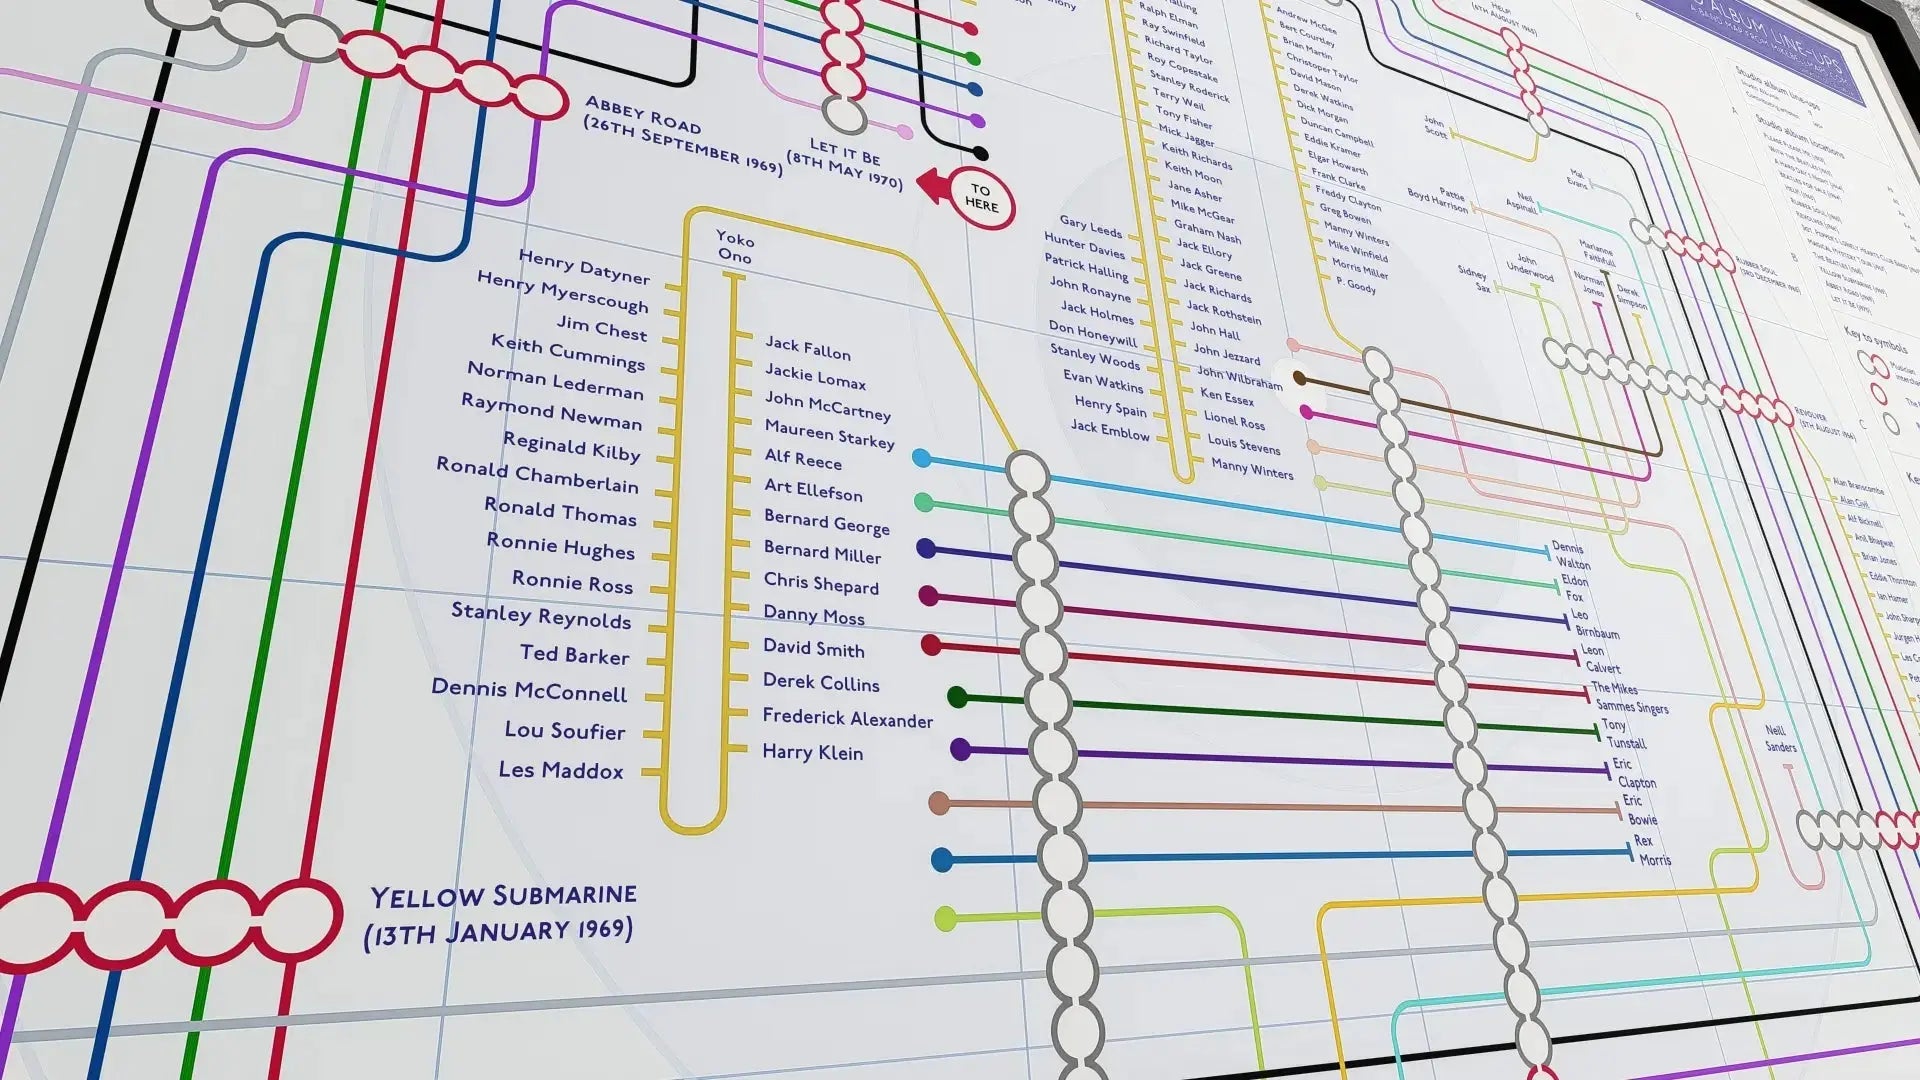 ABBEY ROAD
(26TH SEPTEMBER 1969)
LET IT BE
(8TH MAY 1970)
TO
HERE
Yoko
Ono
Henry Datyner
Henry Myerscough
Jim Chest
Keith Cummings
Norman Lederman
Raymond Newman
Reginald Kilby
Ronald Chamberlain
Ronald Thomas
Ronnie Hughes
Ronnie Ross
Stanley Reynolds
Ted Barker
Dennis McConnell
Lou Soufier
Les Maddox
Jack Fallon
Jackie Lomax
John McCartney
Maureen Starkey
Alf Reece
Art Ellefson
Bernard George
Bernard Miller
Chris Shepard
Danny Moss
David Smith
Derek Collins
Frederick Alexander
Harry Klein
YELLOW SUBMARINE
(13TH JANUARY 1969)
Gary Leeds
Hunter Davies
Patrick Halling
John Ronayne
Jack Holmes
Don Honeywill
Stanley Woods
Evan Watkins
Henry Spain
Jack Emblow
Ralph Elman
Ray Swinfield
Richard Taylor
Roy Copestake
Stanley Roderick
Terry Weil
Tony Fisher
Mick Jagger
Keith Richards
Keith Moon
Jane Asher
Mike McGear
Graham Nash
Jack Ellory
Jack Greene
Jack Richards
Jack Rothstein
John Hall
John Jezzard
John Wilbraham
Ken Essex
Lionel Ross
Louis Stevens
Manny Winters
Andrew McGee
Bert Courtley
Brian Martin
Christoper Taylor
David Mason
Derek Watkins
Dick Morgan
Duncan Campbell
Eddie Kramer
Elgar Howarth
Frank Clarke
Freddy Clayton
Greg Bowen
Manny Winters
Mike Winfield
Morris Miller
P. Goody
HELP!
(6TH AUGUST 1965)
John
Scott
Mal
Evans
Pattie
Boyd Harrison
Neil
Aspinall
Sidney
Sax
John
Underwood
Marianne
Faithfull
Norman
Jones
Derek
Simpson
RUBBER SOUL
(3RD DECEMBER 1965)
REVOLVER
(5TH AUGUST 1966)
Dennis
Walton
Eldon
Fox
Leo
Birnbaum
Leon
Calvert
The Mikes
Sammes Singers
Tony
Tunstall
Eric
Clapton
Eric
Bowie
Rex
Morris
Neill
Sanders
Alan Branscombe
Alan Civil
Alf Bicknell
Anil Bhagwat
Brian Jones
Eddie Thornton
Ian Hamer
ALBUM LINE-UPS
Studio album line-ups
Studio album locations
Key to symbols